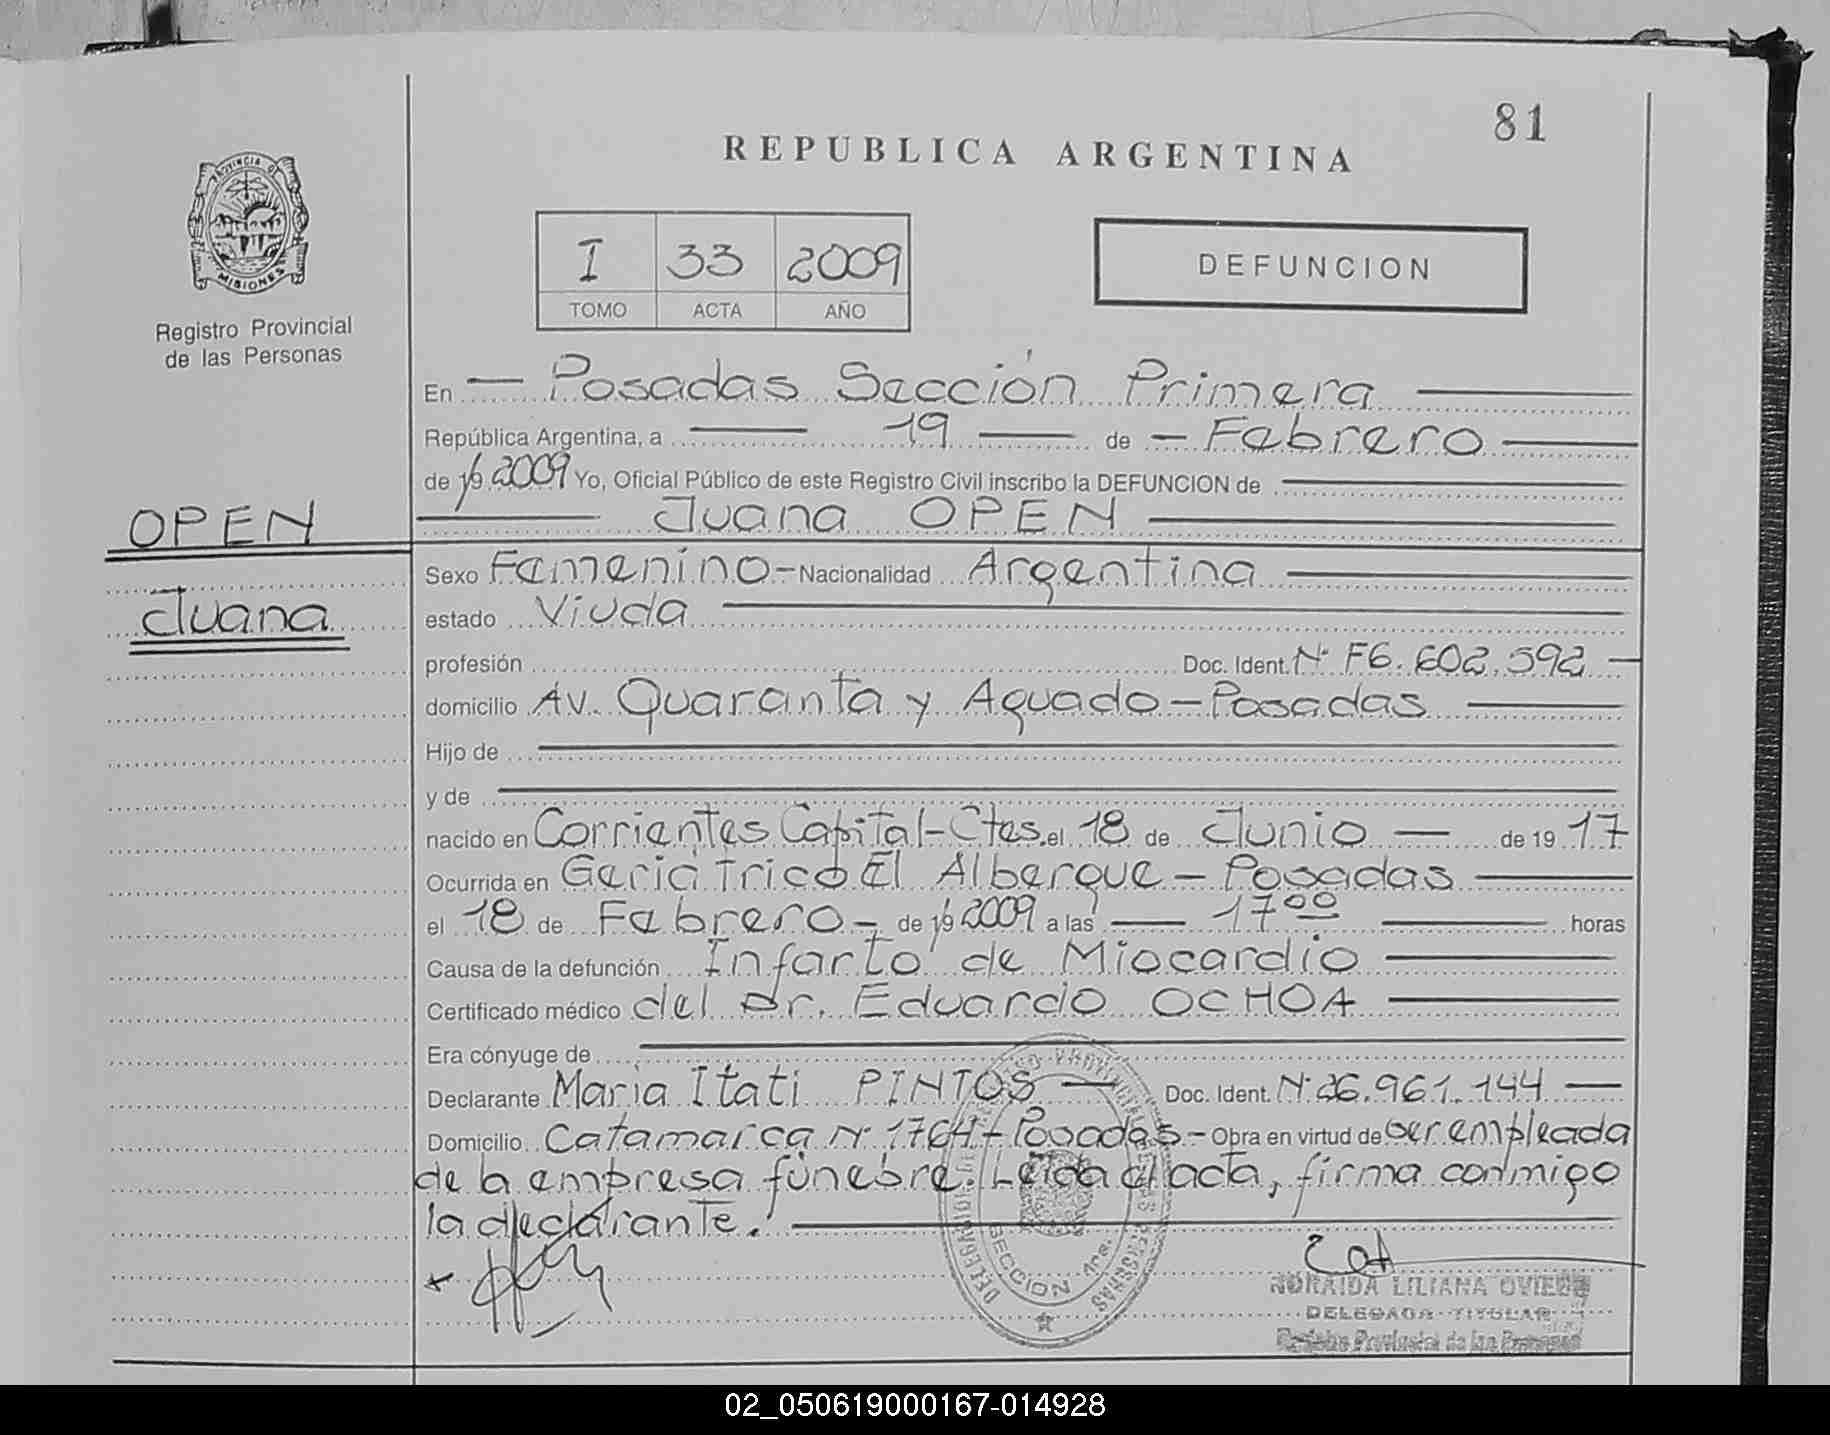 81
REPUBLICA ARGENTINA
PROVINCIA DE
MISIONES
Registro Provincial
de las Personas
I 33 2009
TOMO ACTA AÑO
DEFUNCION
En — Posadas Sección Primera —
República Argentina, a — 19 — de — Febrero —
de 19 2009 Yo, Oficial Público de este Registro Civil inscribo la DEFUNCION de —
— Juana OPEN —
OPEN
Juana
Sexo Femenino — Nacionalidad Argentina —
estado Viuda —
profesión Doc. Ident. Nº F6.602.592 —
domicilio Av. Quaranta y Aguado — Posadas —
Hijo de —
y de —
nacido en Corrientes Capital - Ctes. el 18 de Junio — de 19 17
Ocurrida en Geriátrico El Albergue — Posadas —
el 18 de Febrero — de 19 2009 a las — 17 00 — horas
Causa de la defunción Infarto de Miocardio —
Certificado médico del Dr. Eduardo OCHOA —
Era cónyuge de —
Declarante Maria Itati PINTOS — Doc. Ident. Nº 26.961.144 —
Domicilio Catamarca Nº 1764 - Posadas - Obra en virtud de ser empleada
de la empresa fúnebre. Leída el acta, firma conmigo
la declarante. —
SECCION 1ra.
NORAIDA LILIANA OVIEDO
DELEGADA TITULAR
Registro Provincial de las Personas
02_050619000167-014928